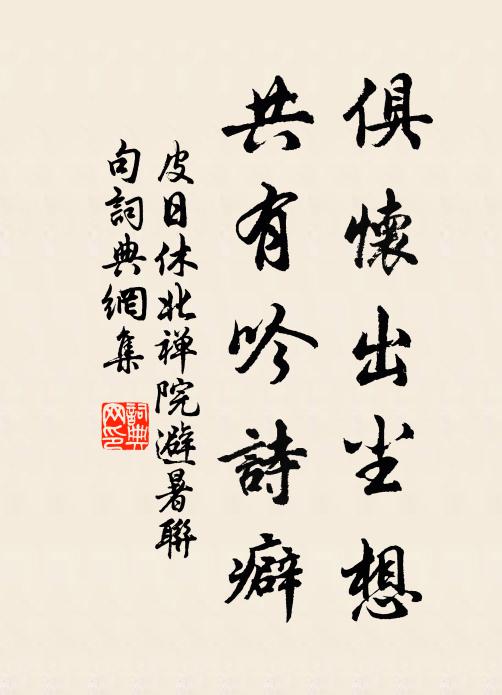 俱懷出尘想
共有吟詩癖
皮日休北禅院避暑聯
句詞典網集
詞典
网印